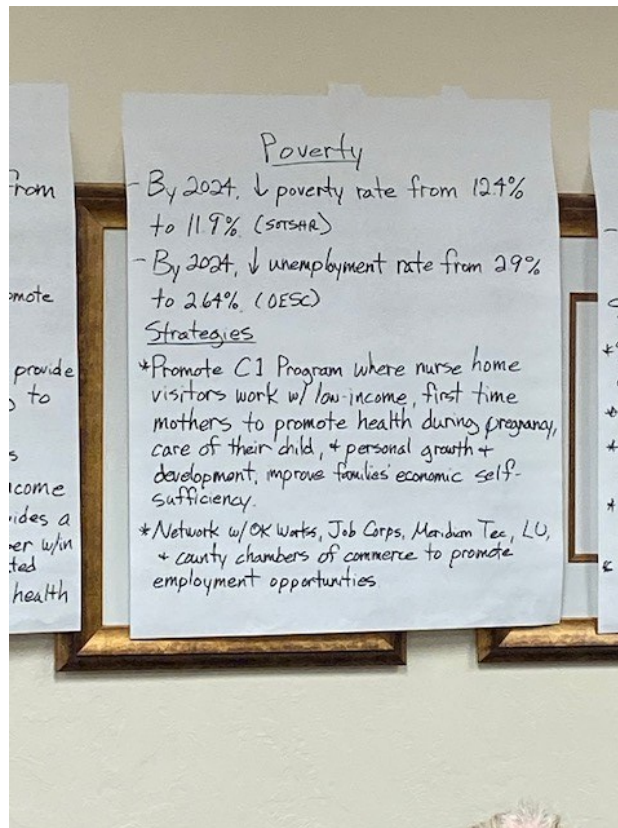 Poverty
- By 2024, ↓ poverty rate from 12.4%
to 11.9% (SOTSHR)
- By 2024, ↓ unemployment rate from 2.9%
to 2.64% (OESC)
Strategies
*Promote C1 Program where nurse home
visitors work w/ low-income, first time
mothers to promote health during pregnancy,
care of their child, + personal growth +
development, improve families' economic self-
sufficiency.
*Network w/ OK Works, Job Corps, Meridian Tec, LU,
+ county chambers of commerce to promote
employment opportunities
from
provide
to
come
ides a
er w/in
ted
health